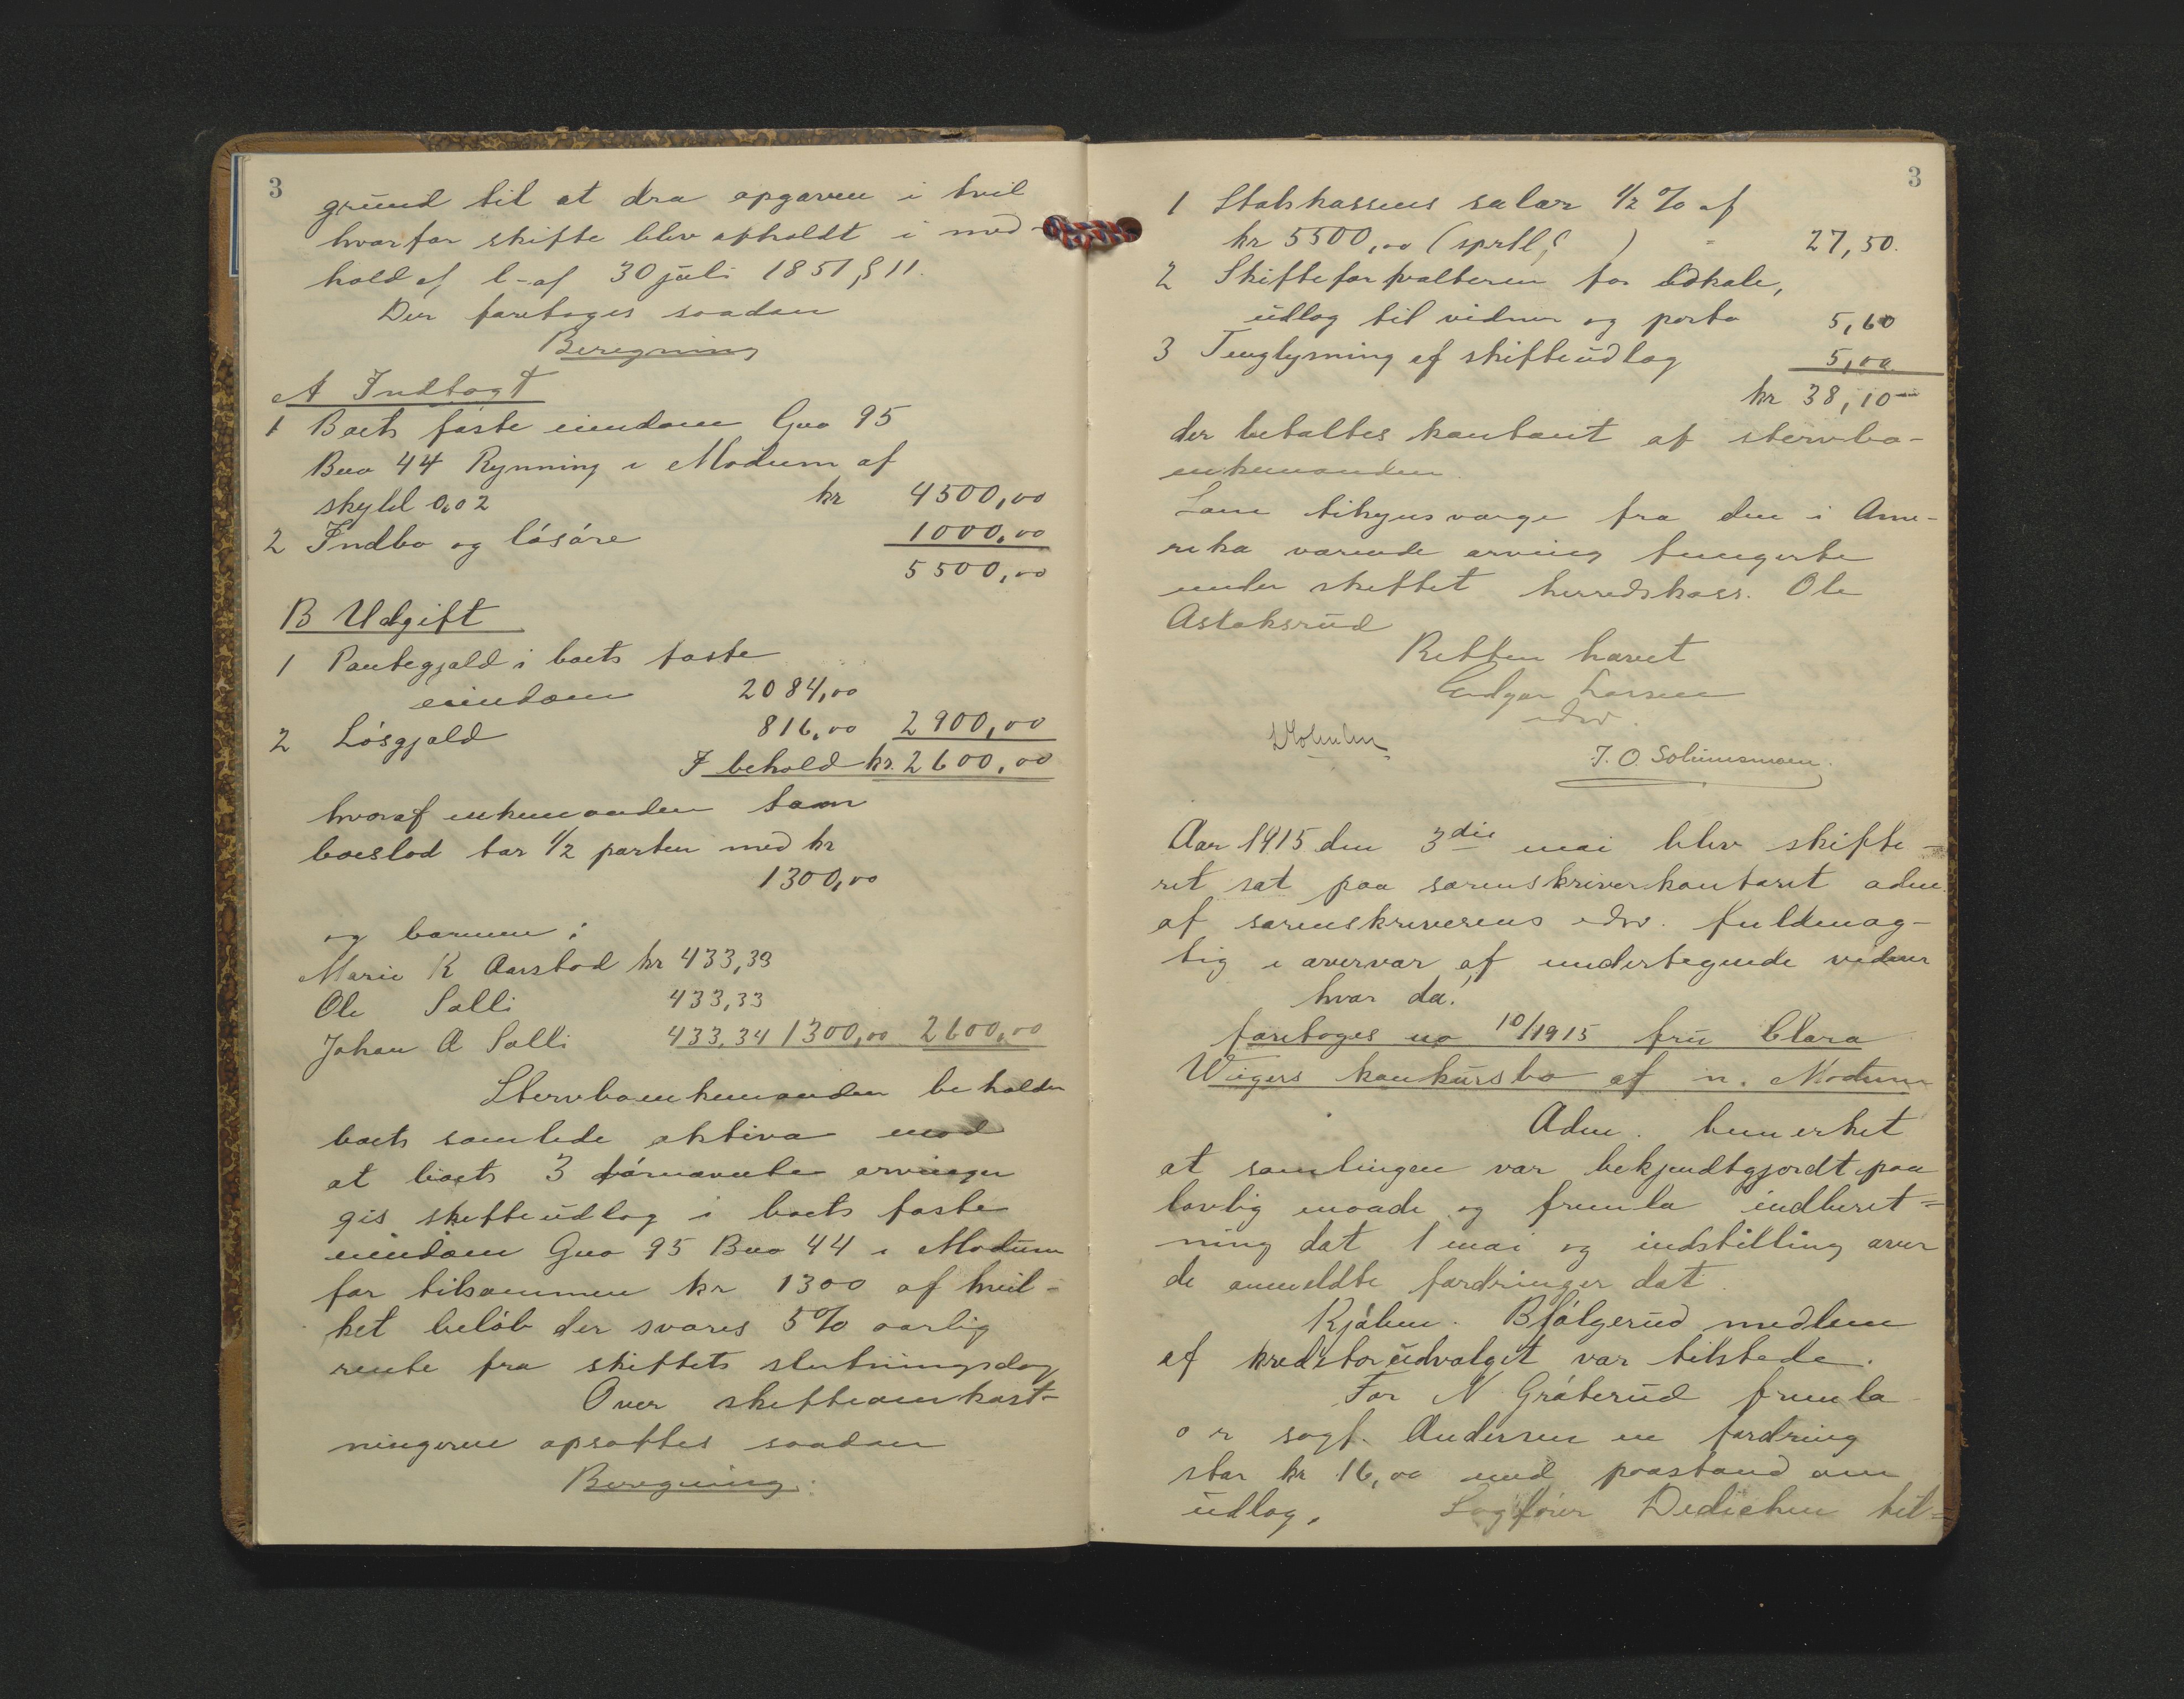 3
grund til at dra opgaven i tvil
hvorfor skifte blev afholdt i med-
hold af l-af 30 juli 1851 § 11.
Der foretoges saadan
Beregning
A Indtægt
1 Boets faste eiendom Gno 95
Bno 44 Rynning i Modum af
skyld 0,02 kr 4500,00
2 Indbo og løsøre 1000,00
5500,00
B Udgift
1 Pantegjæld i boets faste
eiendom 2084,00
2 Løsgjæld 816,00 2900,00
I behold kr. 2600,00
hvoraf enkemanden som
boeslod tar 1/2 parten med kr
1300,00
og barnene:
Marie K Aarstad kr 433,33
Ole Salli 433,33
Johan A Salli 433,34 1300,00 2600,00
Stervboenkemanden beholder
boets samlede aktiva mod
at boets 3 førnævnte arvinger
gis skifteudlæg i boets faste
eiendom Gno 95 Bno 44 i Modum
for tilsammen kr 1300 af hvil-
ket beløb der svares 5% aarlig
rente fra skiftets slutningsdag
Over skifteomkost-
ningerne opsattes saadan
Beregning:
3
1 Statskassens salær 1/2 % af
kr 5500,00 (sprtl,§ ) " 27,50.
2 Skifteforvalteren for lokale,
udlæg til vidner og porto 5,60
3 Tinglysning af skifteudlæg 5,00
kr 38,10
der betaltes kontant af stervbo-
enkemanden.
Som tilsynsværge fra den i Ame-
rika værende arving fungerte
under skiftet herredskass. Ole
Aslaksrud
Retten hævet
Endgar Larsen
edsv.
J. O. Solumsmoen.
Aar 1915 den 3die mai blev skifte-
ret sat paa sorenskriverkontoret adm.
af sorenskriverens edsv. fuldmæg-
tig i overvær af undertegnede vidner
hvor da:
foretoges no 10/1915 fru Clara
Wiigers konkursbo af n. Modum
Adm. bemerket
at samlingen var bekjendtgjordt paa
lovlig maade og fremla indberet=
ning dat 1 mai og indstilling over
de anmeldte fordringer dat.
Kjøbm. B Følgerud medlem
af kreditorudvalget var tilstede.
For N Gråterud fremla
o r sagf. Andersen en fordring
stor kr 16,00 med paastand om
udlæg. Sagfører Dedichen til=